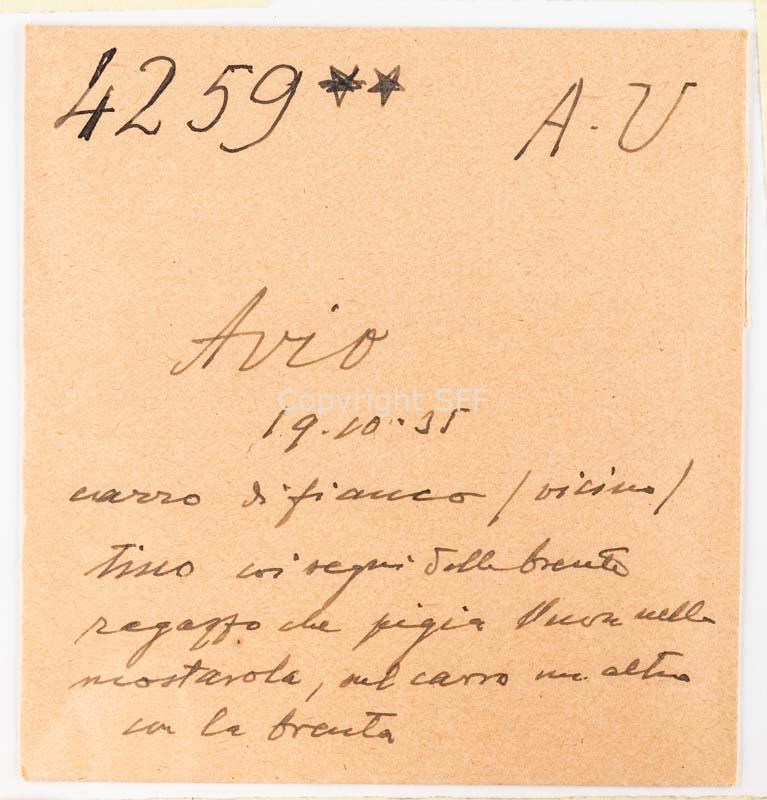 4259** A.V
Avio
Copyright SEF
19.10.35
carro di fianco /vicino/
tino coi segni delle brente
ragazzo che pigia l'uva nella
mostarola, sul carro un altro
con la brenta